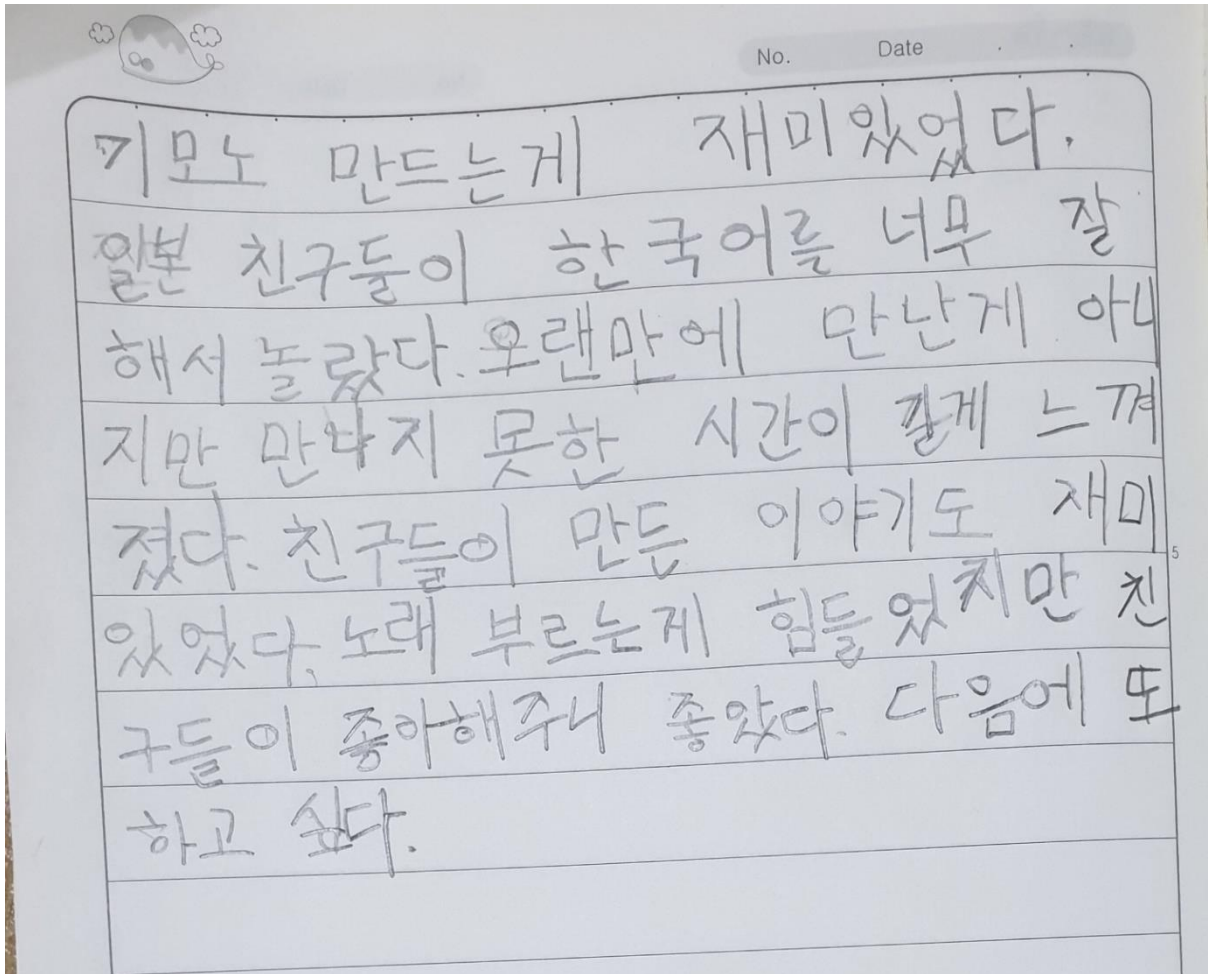 No. Date
기모노 만드는게 재미있었다.
일본 친구들이 한국어를 너무 잘
해서 놀랐다. 오랜만에 만난게 아니
지만 만나지 못한 시간이 길게 느껴
졌다. 친구들이 만든 이야기도 재미
5
있었다. 노래 부르는게 힘들었지만 친
구들이 좋아해주니 좋았다. 다음에 또
하고 싶다.